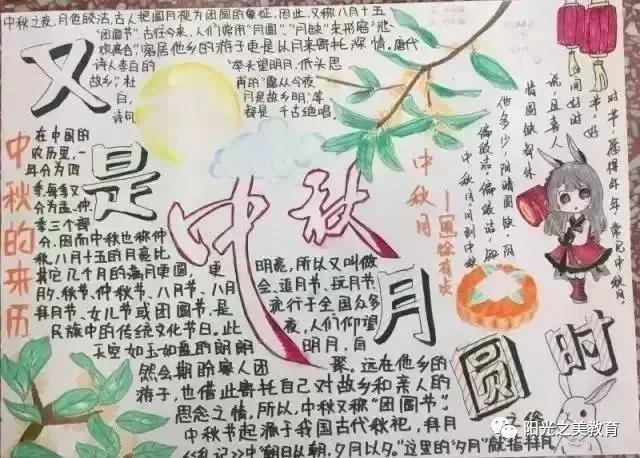 中秋之夜,月色皎洁,古人把圆月视为团圆的象征,因此,又称八月十五
"团圆节"。古往今来,人们常用"月圆""月缺"来形容"悲
欢离合",客居他乡的游子更是以月来寄托深情。唐代
诗人李白的 "举头望明月,低头思
故乡",杜 甫的"露从今夜
白, 月是故乡明"等
诗句 都是千古绝唱
又
是
中秋
月
圆
时
中秋的来历
在中国的
农历里,一
年分为四
季,每季又
分为孟、仲、
季三个部
分,因而中秋也称仲
秋。八月十五的月亮比
其它几个月的满月更圆, 更 明亮,所以又叫做
月夕、秋节、仲秋节、八月节、八月 会、追月节、玩月节、
拜月节、女儿节或团圆节,是 流行于全国众多
民族中的传统文化节日。此 夜,人们仰望
天空如玉如盘的朗朗 明月,自
然会期盼家人团 聚。远在他乡的
游子,也借此寄托自己对故乡和亲人的
思念之情。所以,中秋又称"团圆节"。
中秋节起源于我国古代秋祀,拜月
之俗
《礼记》中"朝日以朝,夕月以夕。"这里的"夕月"就指拜月
中秋月
中秋月。月到中秋
偏皎洁。偏皎洁,知
他多少,阴晴圆缺。阴
情圆缺都休
说,且喜人
间好时
节。好
时节,愿得年年,常见中秋月。
阳光之美教育